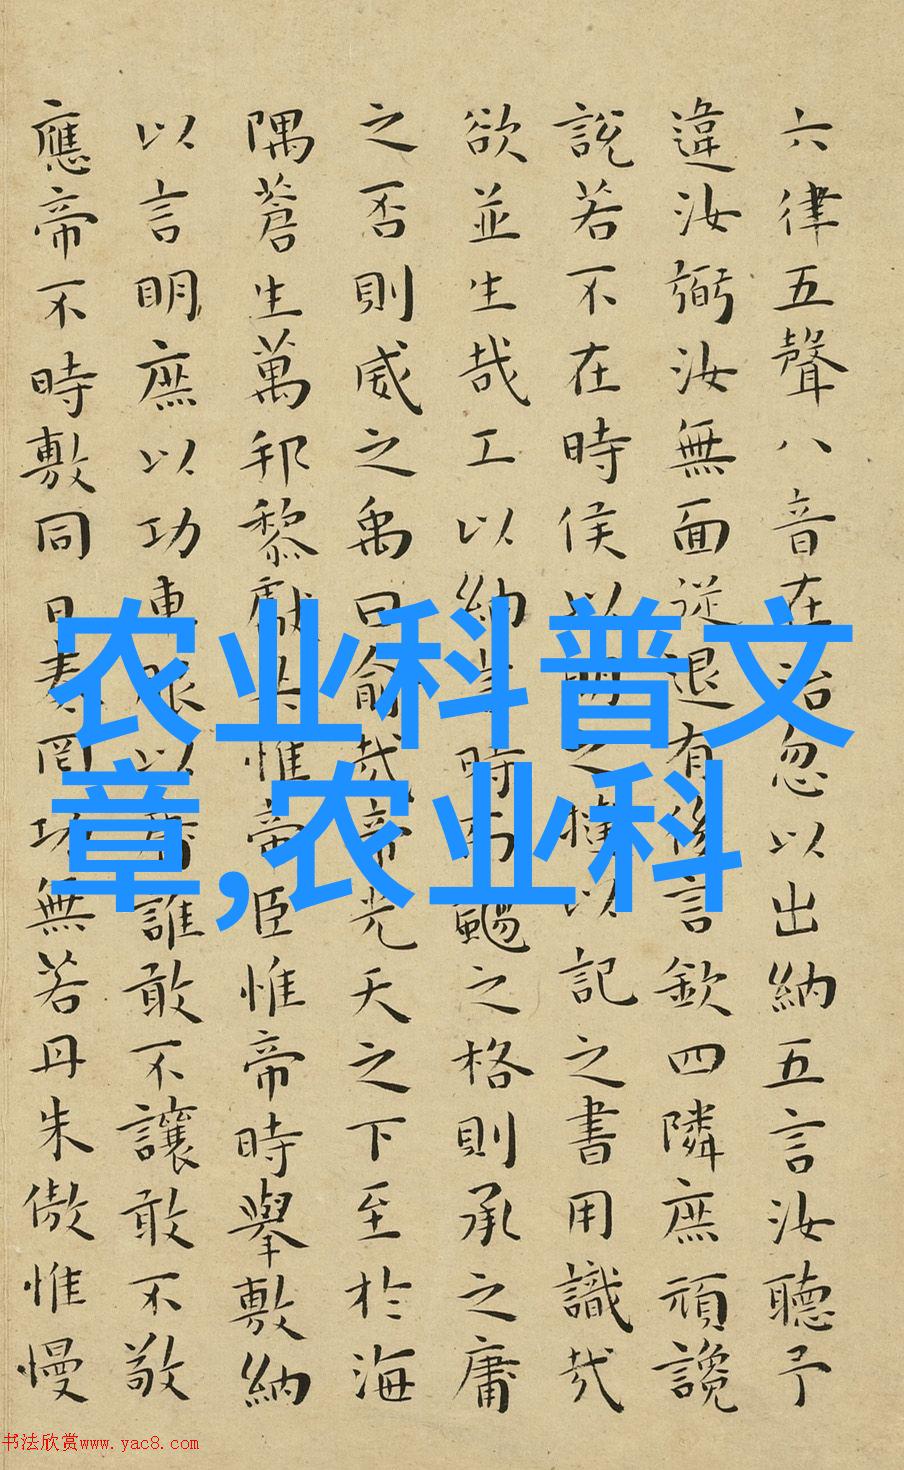 六律五聲八音在治忽以出納五言汝聽予
違汝弼汝無面從退有後言欽四隣庶頑讒
說若不在時侯以明之撻以記之書用識哉
欲並生哉工以納言時而颺之格則承之庸
之否則威之禹曰俞哉帝光天之下至於海
隅蒼生萬邦黎獻共惟帝臣惟帝時舉敷納
以言明庶以功車服以庸誰敢不讓敢不敬
應帝不時敷同日奏罔功無若丹朱傲惟慢
农业科普文
章,农业科
书法欣赏www.yac8.com